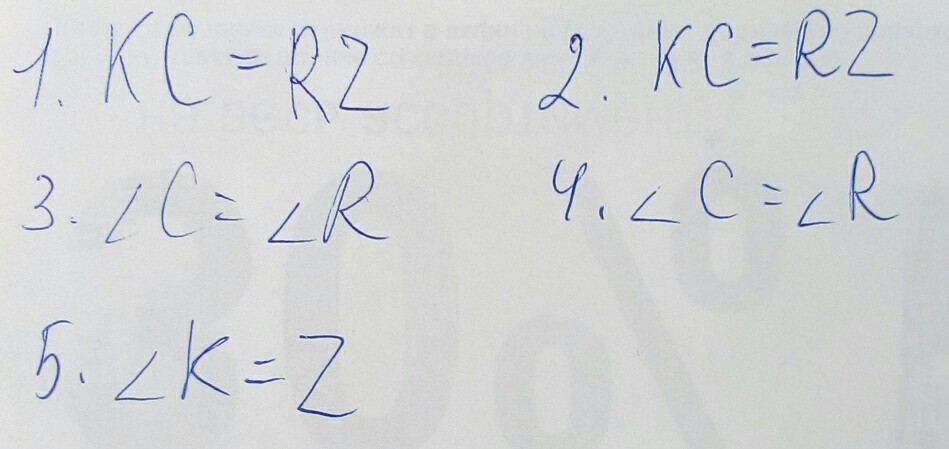 1. KC = RZ 2. KC = RZ
3. ∠C = ∠R 4. ∠C = ∠R
5. ∠K = Z